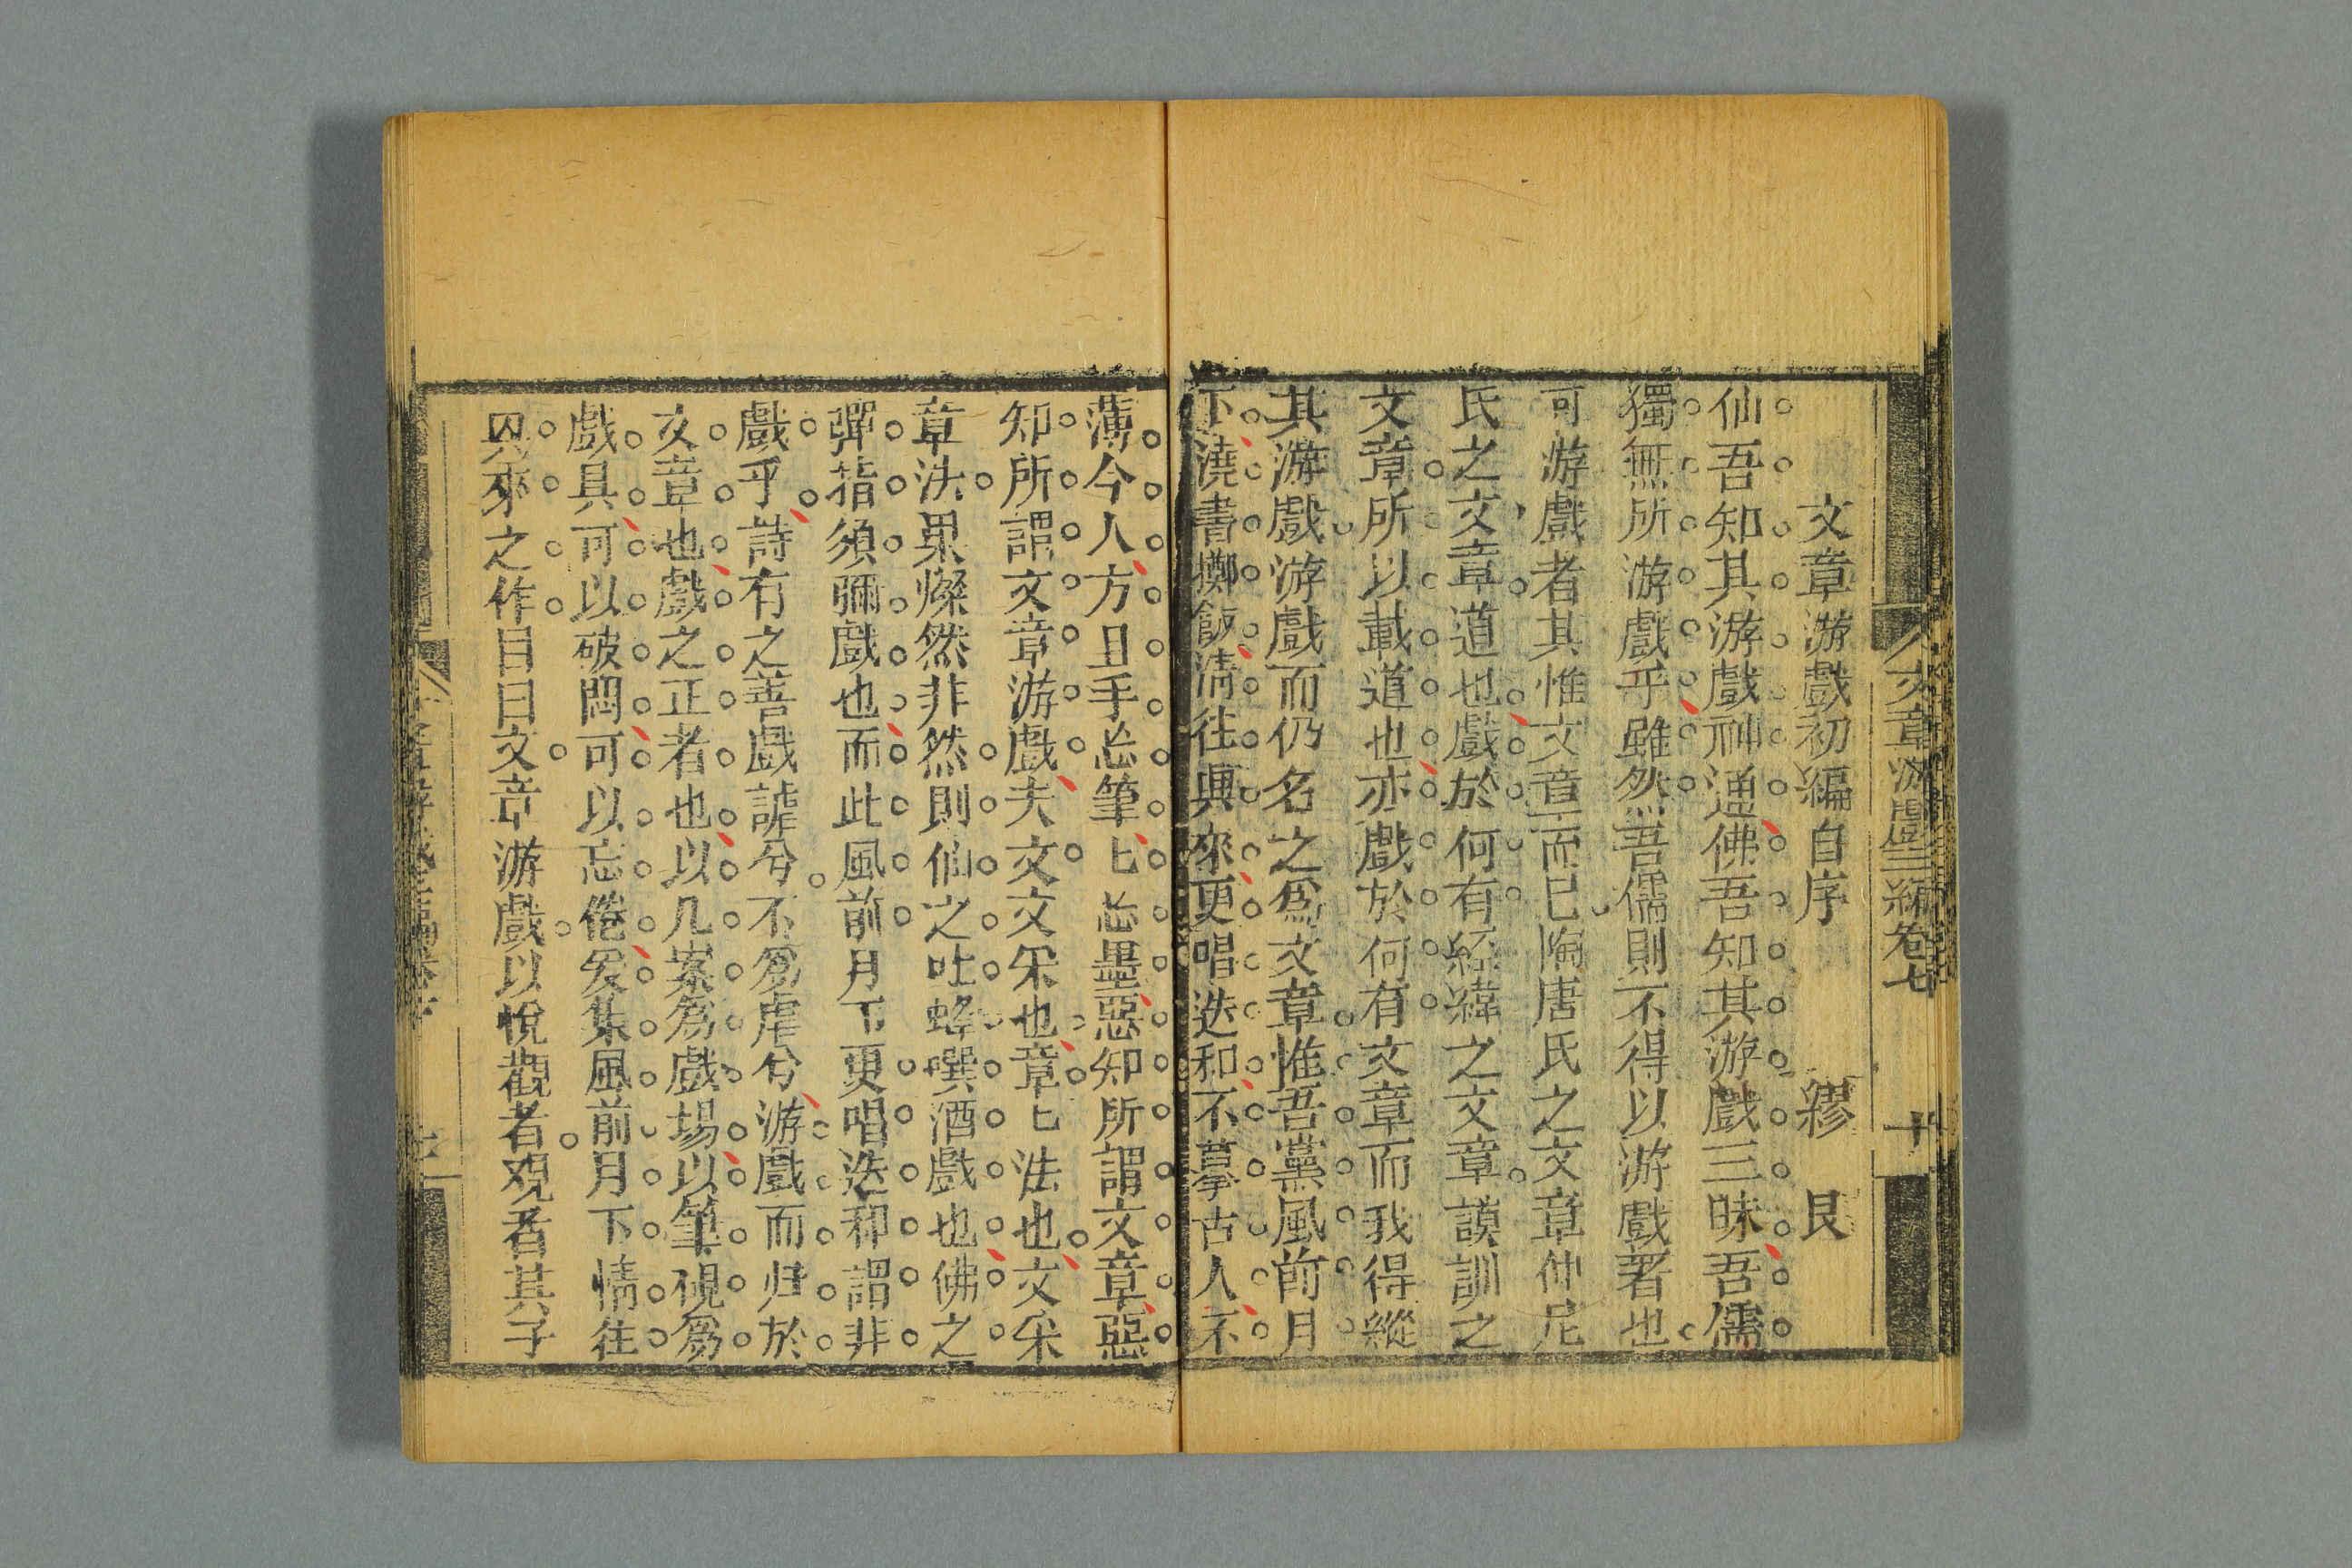 文章游戲初編自序　繆　艮
仙吾知其游戲神通佛吾知其游戲三昧吾儒
獨無所游戲乎雖然吾儒則不得以游戲著也
可游戲者其惟文章而已陶唐氏之文章仲尼
氏之文章道也戲於何有經緯之文章謨訓之
文章所以載道也亦戲於何有文章而我得縱
其游戲游戲而仍名之為文章惟吾黨風前月
下澆書擲飯淸往興來更唱迭和不摹古人不
薄今人方且手忘筆匕忘墨惡知所謂文章惡
知所謂文章游戲夫文文采也章匕法也文采
章法果燦然非然則仙之吐蜂噀酒戲也佛之
彈指須彌戲也而此風前月下更唱迭和謂非
戲乎詩有之善戲謔兮不為虐兮游戲而归於
文章也戲之正者也以几案為戲場以筆硯為
戲具可以破悶可以忘倦爰集風前月下情往
興來之作目曰文章游戲以悅觀者观者其子
文章游戲三編卷七
十